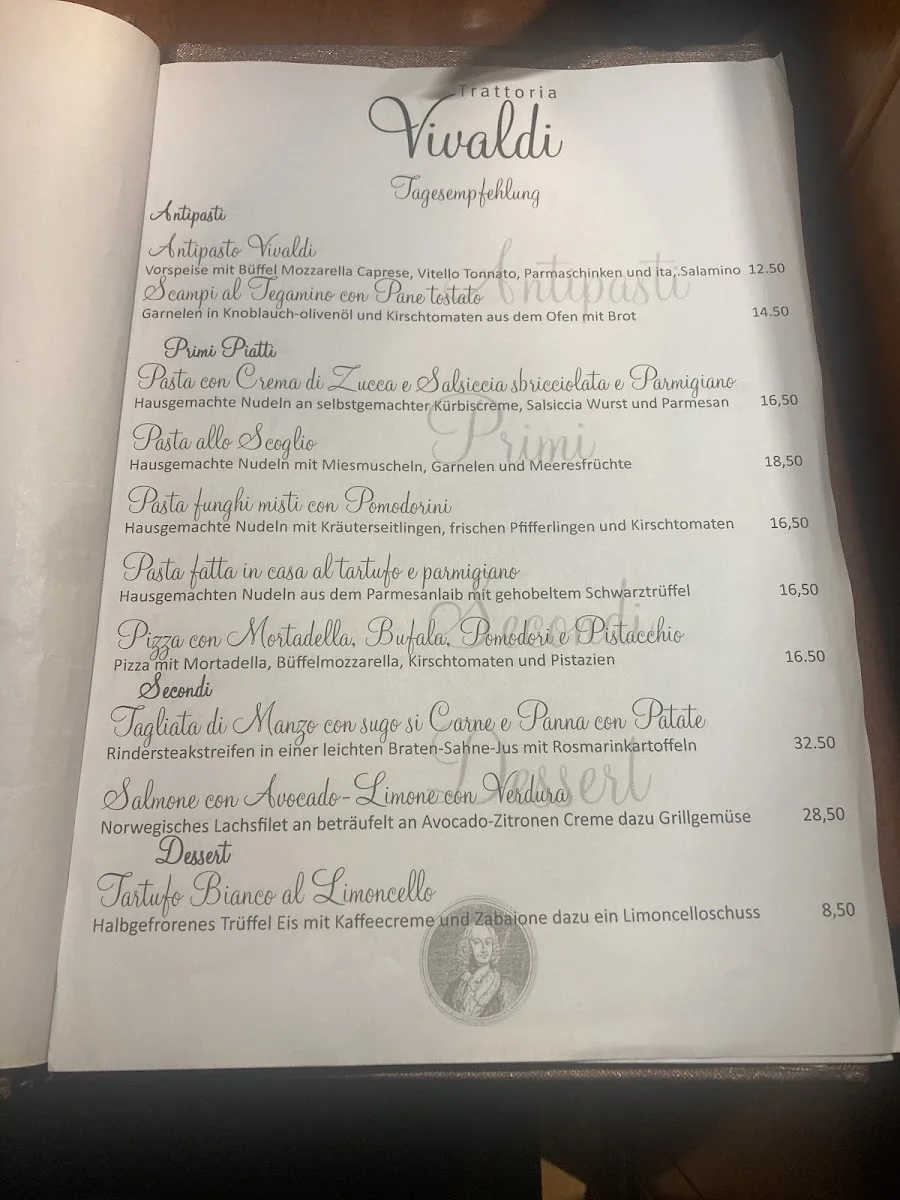 Trattoria
Vivaldi
Tagesempfehlung
Antipasti
Antipasto Vivaldi
Vorspeise mit Büffel Mozzarella Caprese, Vitello Tonnato, Parmaschinken und ita,.Salamino 12.50
Antipasti
Scampi al Tegamino con Pane tostato
Garnelen in Knoblauch-olivenöl und Kirschtomaten aus dem Ofen mit Brot 14.50
Primi Piatti
Pasta con Crema di Zucca e Salsiccia sbricciolata e Parmigiano
Hausgemachte Nudeln an selbstgemachter Kürbiscreme, Salsiccia Wurst und Parmesan 16,50
Primi
Pasta allo Scoglio
Hausgemachte Nudeln mit Miesmuscheln, Garnelen und Meeresfrüchte 18,50
Pasta funghi misti con Pomodorini
Hausgemachte Nudeln mit Kräuterseitlingen, frischen Pfifferlingen und Kirschtomaten 16,50
Pasta fatta in casa al tartufo e parmigiano
Hausgemachten Nudeln aus dem Parmesanlaib mit gehobeltem Schwarztrüffel 16,50
Secondi
Pizza con Mortadella, Bufala, Pomodori e Pistacchio
Pizza mit Mortadella, Büffelmozzarella, Kirschtomaten und Pistazien 16.50
Secondi
Tagliata di Manzo con sugo si Carne e Panna con Patate
Rindersteakstreifen in einer leichten Braten-Sahne-Jus mit Rosmarinkartoffeln 32.50
Dessert
Salmone con Avocado-Limone con Verdura
Norwegisches Lachsfilet an beträufelt an Avocado-Zitronen Creme dazu Grillgemüse 28,50
Dessert
Tartufo Bianco al Limoncello
Halbgefrorenes Trüffel Eis mit Kaffeecreme und Zabaione dazu ein Limoncelloschuss 8,50